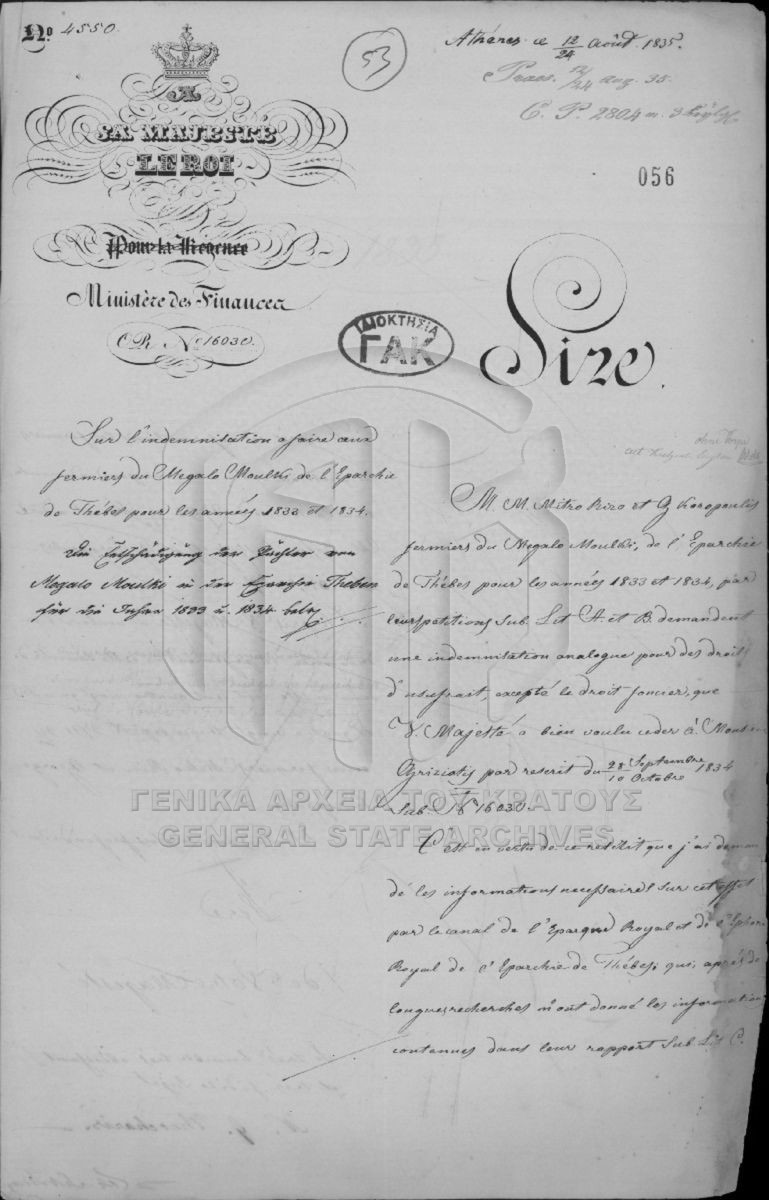 No 4550.
53
Athénes ce 12/24 Août 1835.
Praes. 12/24 aug. 35.
C. P. 2804 m. 3
056
A
SA MAJESTÉ
LE ROI
Pour la Régence
Ministère des Finances
O R. No 16030.
ΙΔΙΟΚΤΗΣΙΑ
ΓΑΚ
Sire.
Sur l'indemnisation a faire aux
fermiers du Megalo Moulki de l'Eparchie
de Thébes pour les années 1833 et 1834.
Die Entschädigung der Pächter von
Megalo Moulki in der Eparchie Theben
für die Jahre 1833 u. 1834 betr.
M. M. Mitro Rizo et G Koropoulis
fermiers du Megalo Moulki, de l'Eparchie
de Thébes pour les années 1833 et 1834, par
leurs petitions sub. Lit A. et B. demandent
une indemnisation analogue pour des droits
d'usufruit, excepté le droit foncier, que
V. Majesté a bien voulu ceder à Monsieur
Griziotis par rescrit du 28 Septembre/10 Octobre 1834
Sub. No 16030.
C'est en vertu de ce rescrit que j'ai deman
dé les informations necessaires sur cet effet
par le canal de l'Eparque Royal et de l'Ephore
Royal de l'Eparchie de Thébes, qui, aprés de
longues recherches m'ont donné les informations
contenues dans leur rapport Sub Lit C.
ΓΕΝΙΚΑ ΑΡΧΕΙΑ ΤΟΥ ΚΡΑΤΟΥΣ
GENERAL STATE ARCHIVES